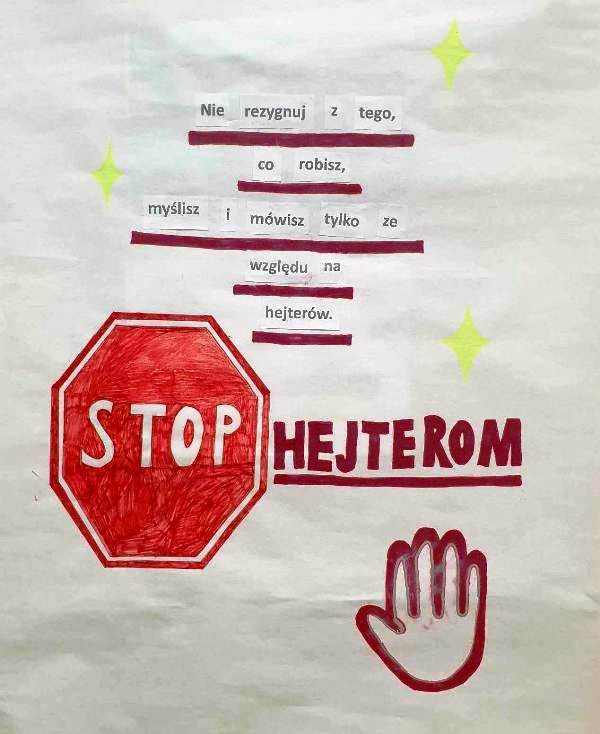 Nie rezygnuj z tego,
co robisz,
myślisz i mówisz tylko ze
względu na
hejterów.
STOP HEJTEROM